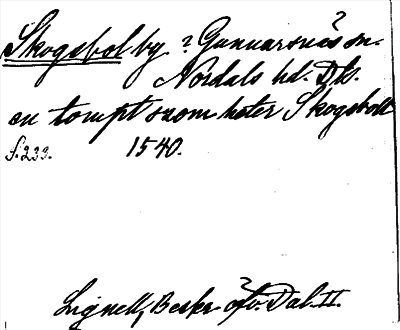 Skogsbol by i Gunnarsnäs sn.
Nordals hd. Dls.
en tompt som heter Skogsboll
S. 233. 1540.
Lignell, Beskr. öfv. Dal. II.